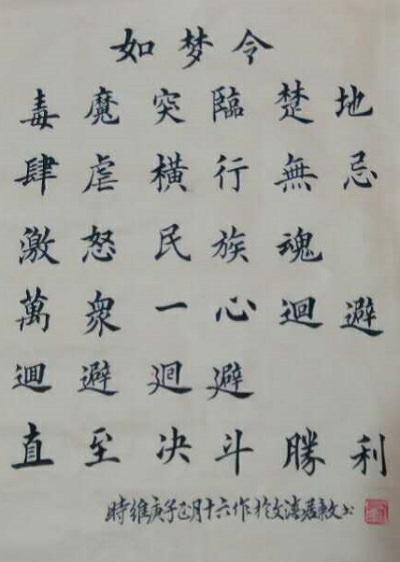 如梦令
毒魔突臨楚地
肆虐橫行無忌
激怒民族魂
萬衆一心迴避
迴避迴避
直至决斗勝利
時維庚子正月十六作於文